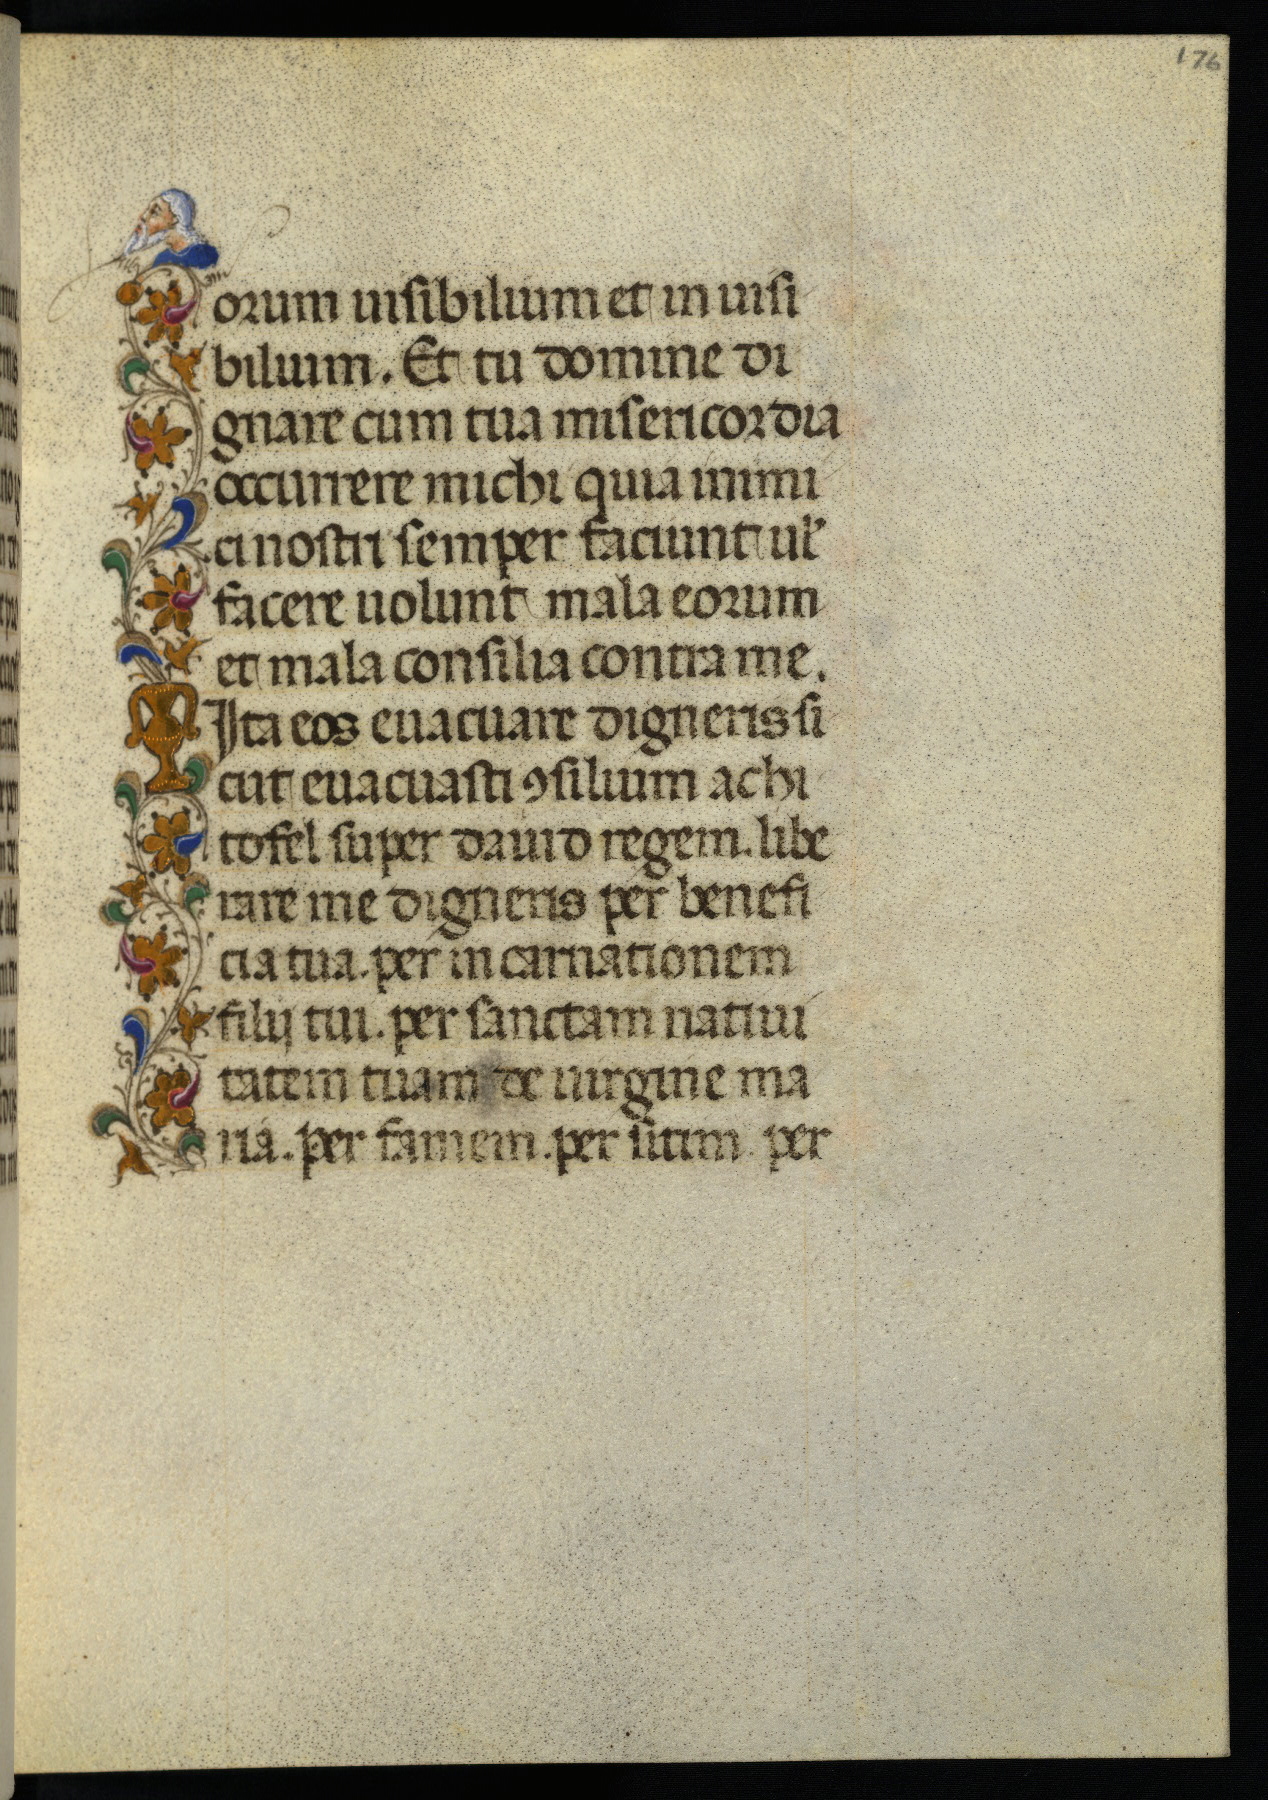 176
orum uisibilium et in uisi
bilium. Et tu domine di
gnare cum tua misericordia
occurrere michi quia inimi
ci nostri semper faciunt ul̕
facere uolunt mala eorum
et mala consilia contra me.
Ita eos euacuare digneris si
cut euacuasti ꝯsilium achi
tofel super dauid regem. libe
rare me digneris per benefi
cia tua. per in carnationem
filij tui. per sanctam natiui
tatem tuam de uirgine ma
ria. per famem. per sitim. per